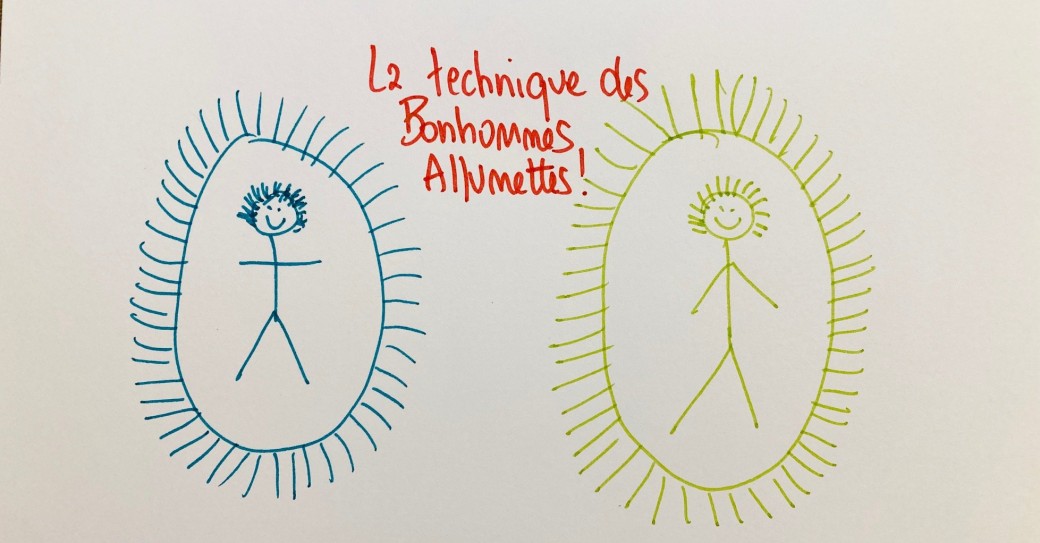 La technique des
Bonhommes
Allumettes!